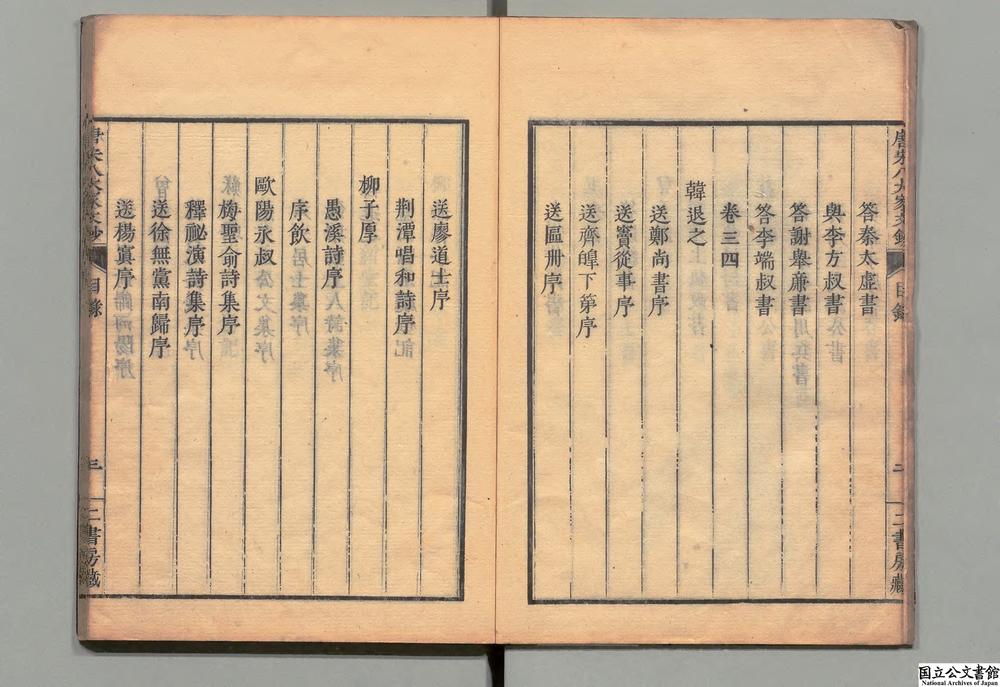 答秦太虛書
與李方叔書
答謝舉廉書
答李端叔書
卷三四
韓退之
送鄭尚書序
送竇從事序
送齊皥下第序
送區册序
送廖道士序
荆潭唱和詩序
柳子厚
愚溪詩序
序飲
歐陽永叔
梅聖俞詩集序
釋祕演詩集序
送徐無黨南歸序
送楊寘序
唐宋八大家文鈔
目錄
二
二書房藏
唐宋八大家文鈔
目錄
三
二書房藏
国立公文書館
National Archives of Japan